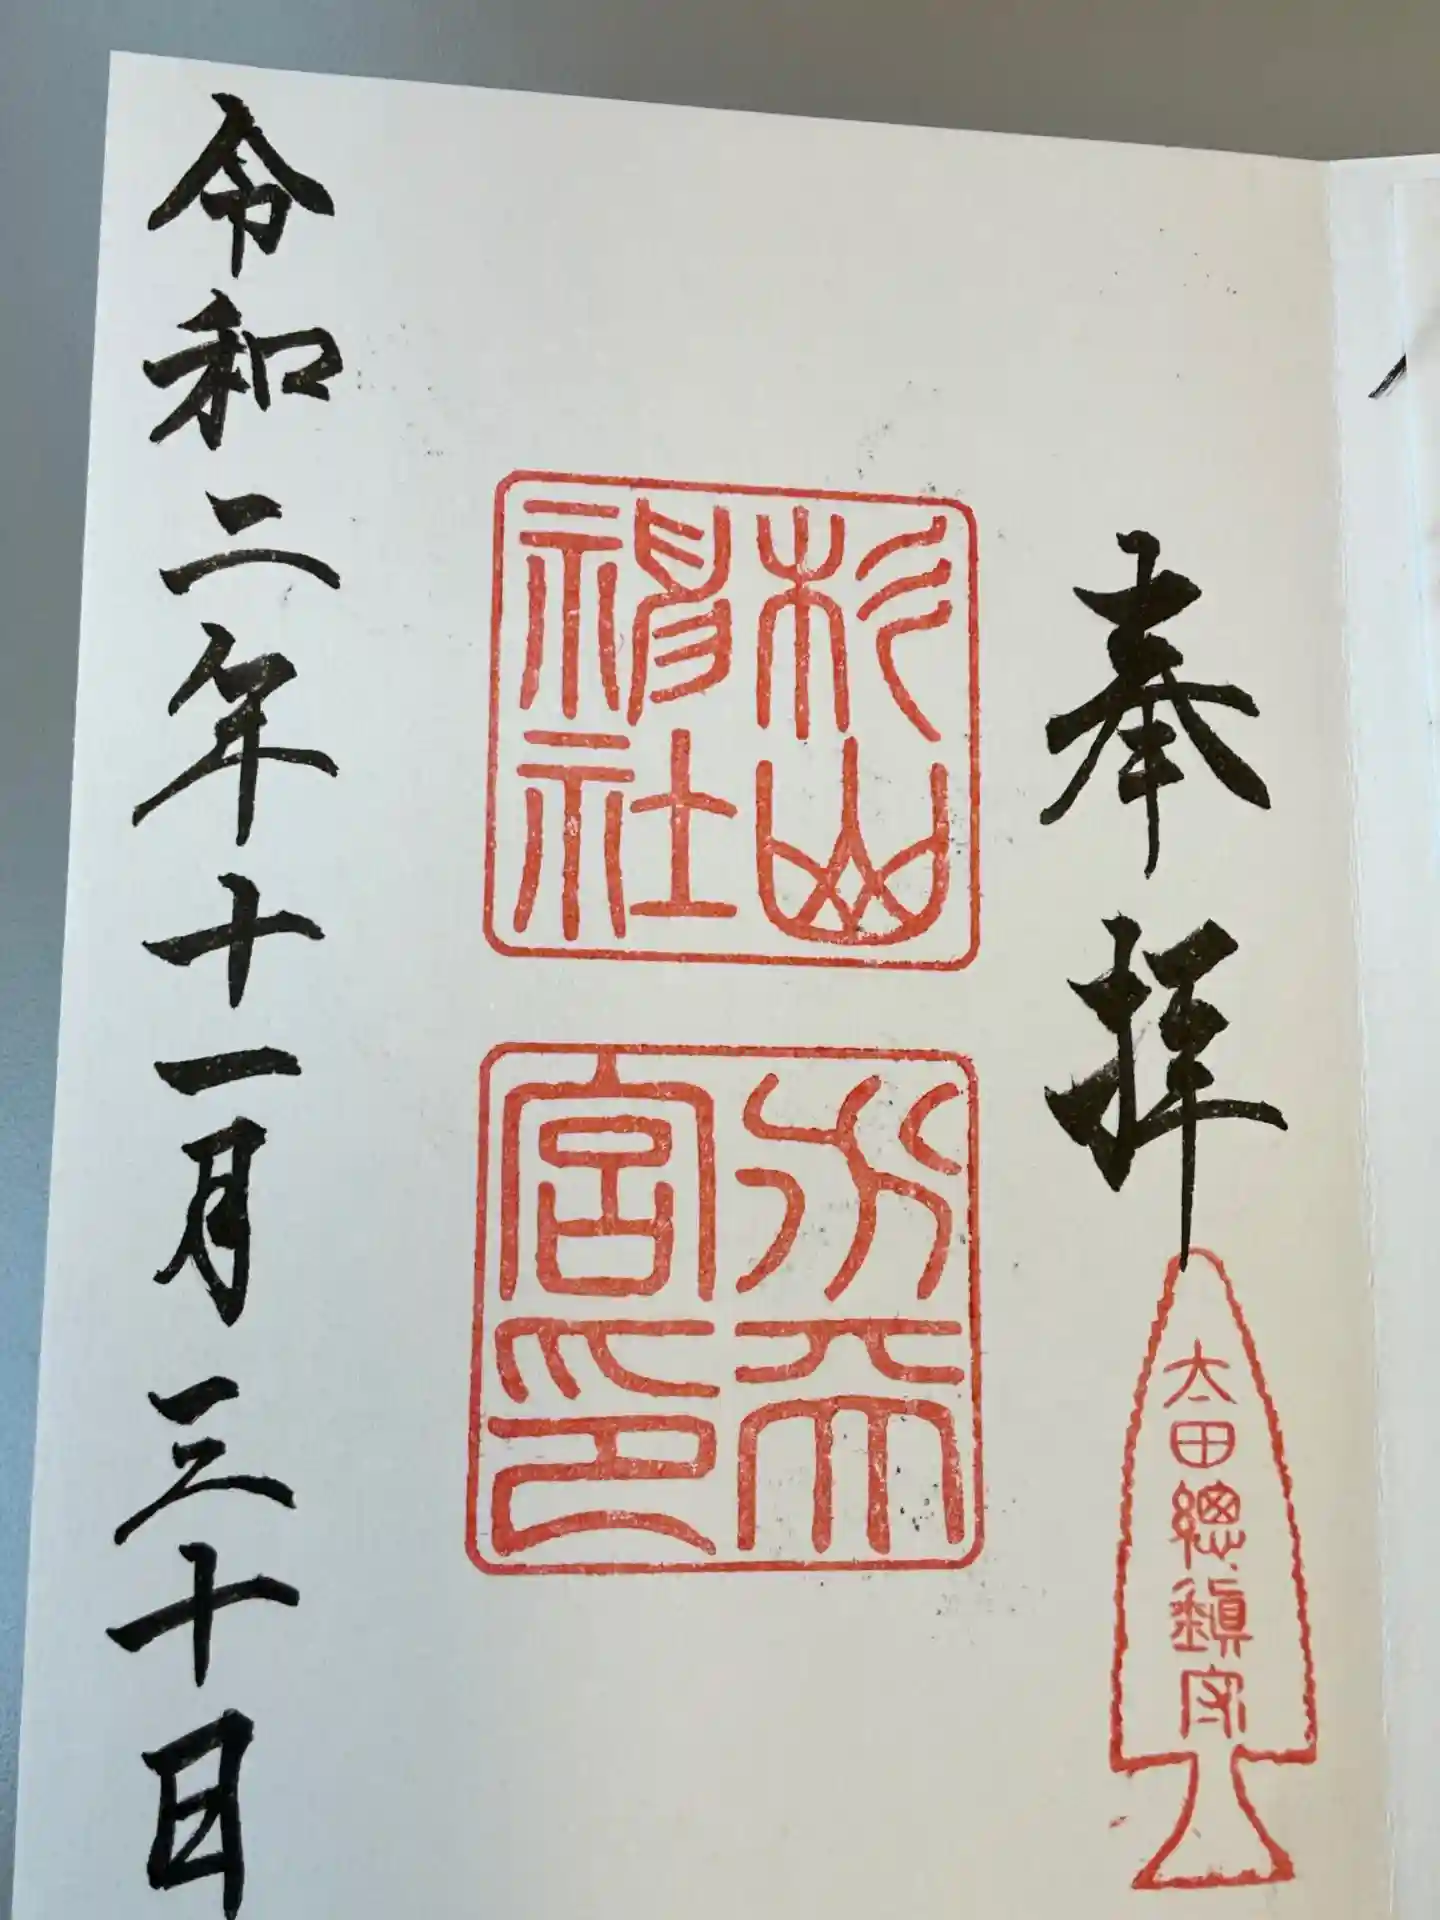 奉拝
太田總鎮守
杉山
神社
水天
宮印
令和二年十一月三十日